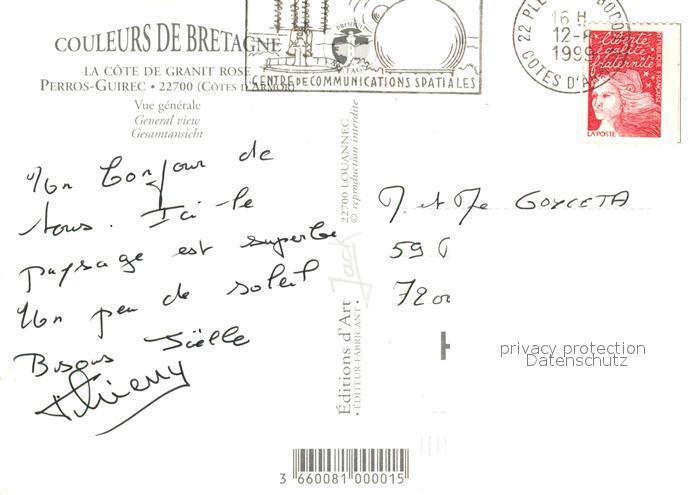 COULEURS DE BRETAGNE
LA CÔTE DE GRANIT ROSE
PERROS-GUIREC • 22700 (CÔTES D'ARMOR)
Vue générale
General view
Gesamtansicht
CENTRE DE COMMUNICATIONS SPATIALES
22 PLE
16 H
12-
1999
COTES D'AR
liberté
égalité
fraternité
RÉPUBLIQUE FRANÇAISE
LA POSTE
Un bonjour de
tous. Ici le
paysage est superbe
Un peu de soleil
Bisous Joëlle
Thierry
22700 LOUANNEC
© reproduction interdite
Jack
Editions d'Art
• ÉDITEUR-FABRICANT •
M. et Me GOYCETA
59
7200
privacy protection
Datenschutz
3 660081 000015